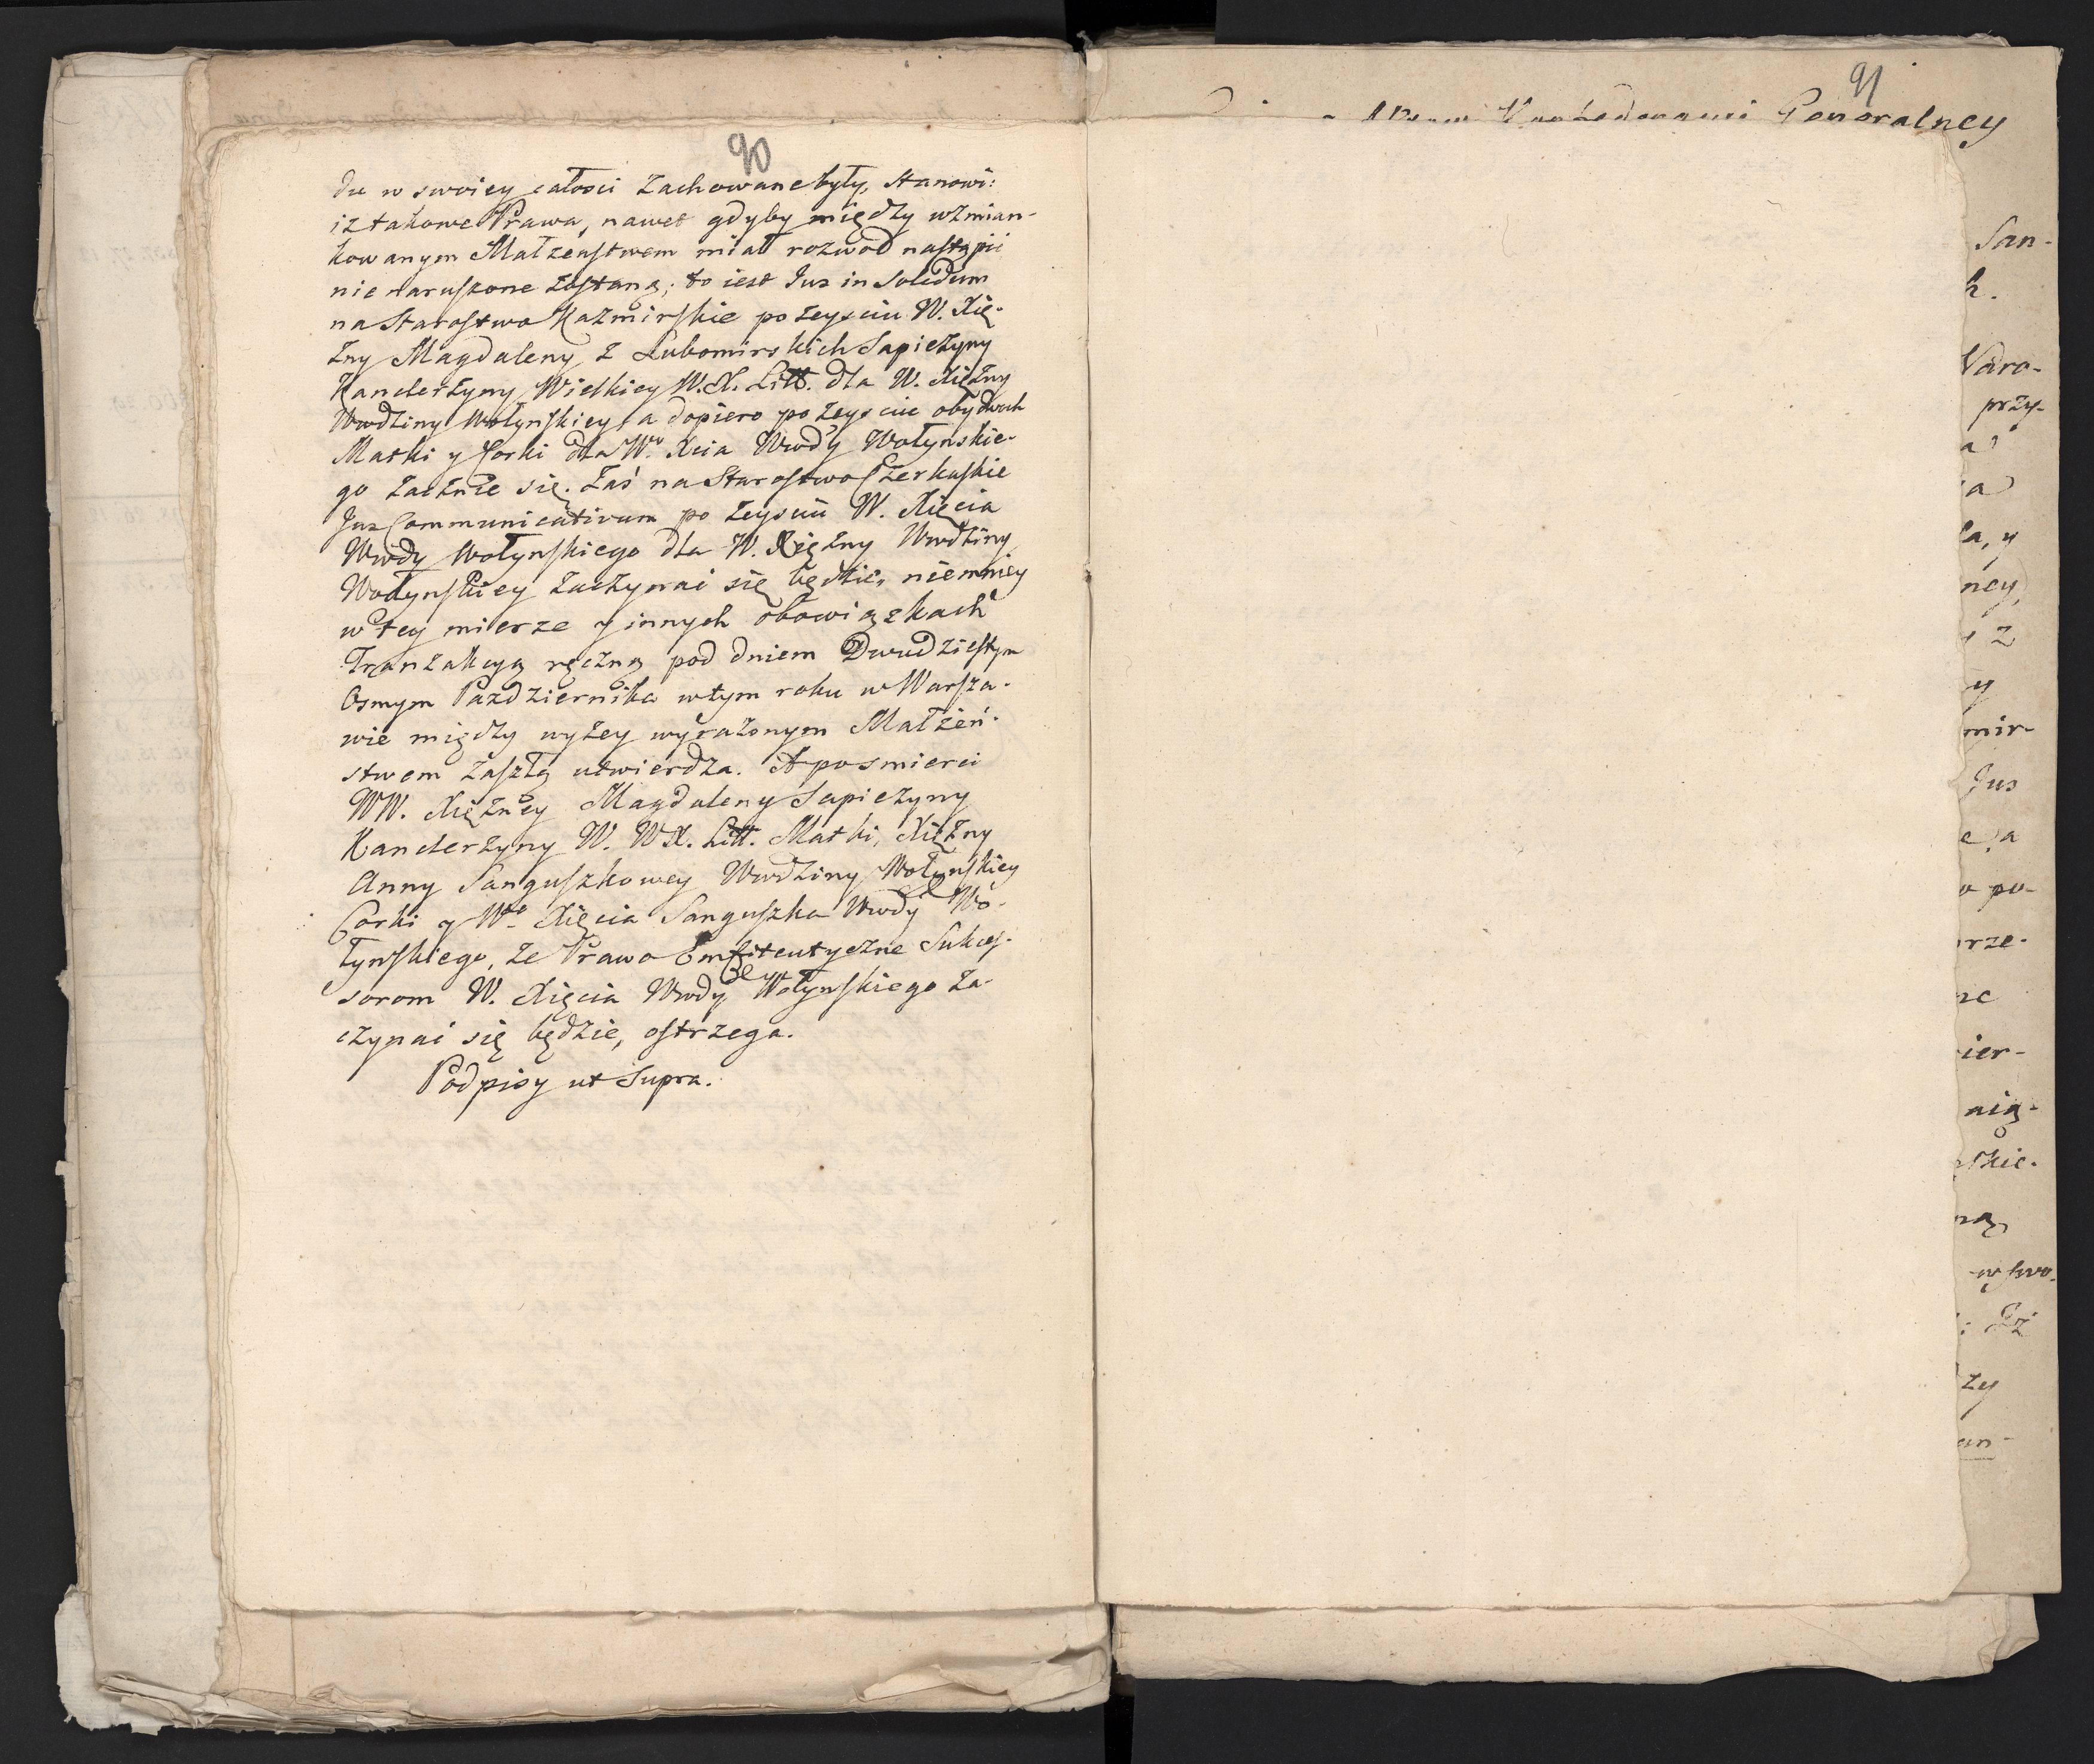 90
du w swoiey całosci zachowane były, stanowi:
iz takowe Prawa, nawet gdyby między wzmian-
kowanym Małzeństwem miał rozwod nastąpić
nie naruszone zostaną; to iest Jus in Solidum
na Starostwo Kazmirskie po zeysciu W. Xię-
żny Magdaleny z Lubomirskich Sapieżyny
Kanclerzyny Wielkiey W. X. Litt. dla W. Xiężny
Wwdziny Wołynskiey a dopiero po zeysciu obydwuch
Matki y Corki dla Wo. Xcia Wwdy Wołynskie-
go zacznie się. Zaś na Starostwo Czerkaskie
Jus Communicativum po zeysciu W. Xięcia
Wwdy Wołynskiego dla W. Xiężny Wwdziny
Wołynskiey zaczynać się będzie, niemniey
w tey mierze y innych obowiązkach
Tranzakcyą ręczną pod dniem Dwudziestym
Osmym Pazdziernika w tym roku w Warsza-
wie między wyżey wyrażonym Małżeń-
stwem zaszłą utwierdza. A po smierci
WW. Xiężney Magdaleny Sapieżyny
Kanclerzyny W. W X. Litt. Matki, Xiężny
Anny Sanguszkowey Wwdziny Wołynskiey
Corki y Wo. Xięcia Sanguszka Wwdy Wo-
łynskiego, że Prawo Emfiteutyczne Sukces-
sorom W. Xięcia Wwdy Wołynskiego za-
czynać się będzie, ostrzega.
Podpisy ut Supra.
91
Generalney
San-
k.
przy-
a
la, y
ney,
z
y
mir-
Jus
e, a
o po-
rze-
ne
ier-
nią-
skie-
ną,
w swo-
: Iż
zy
an-